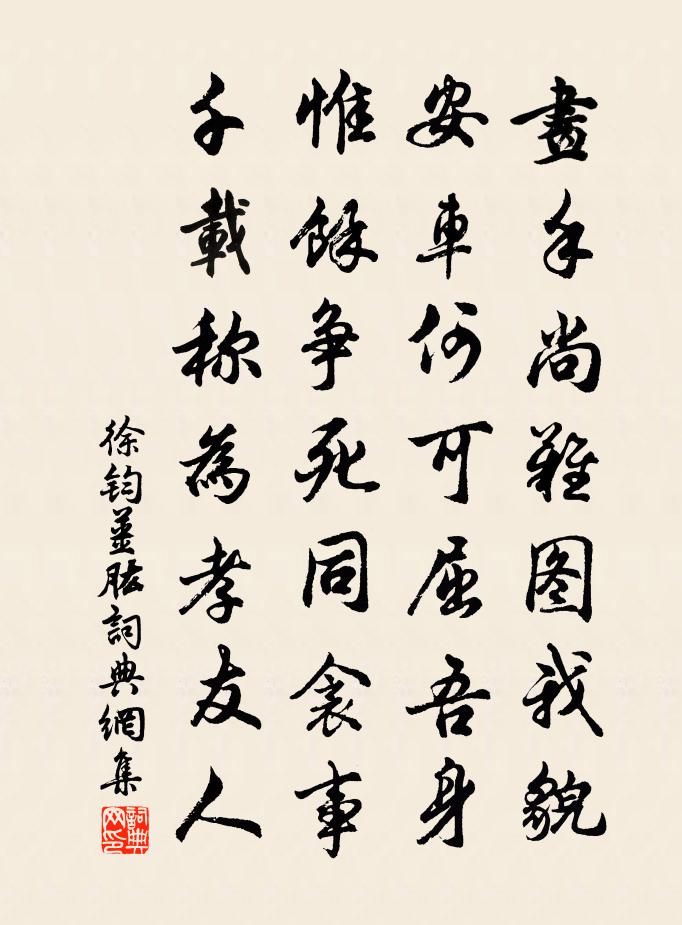 畫手尚難图我貌
安車何可屈吾身
惟餘争死同衾事
千載称為孝友人
徐鈞姜肱詞典網集
詞典网印